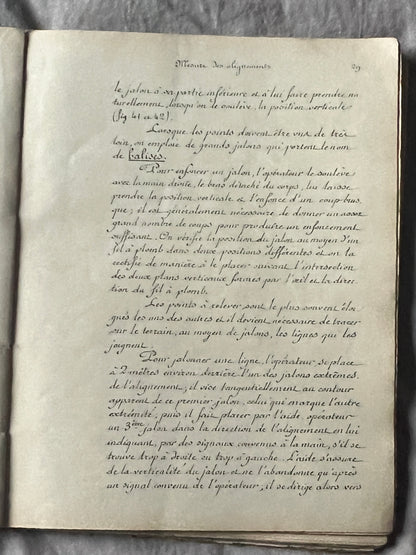 Mesure des alignements 29
le jalon à sa partie inférieure et à lui faire prendre na
turellement, lorsqu'on le soulève, la position verticale
(fig. 41 et 42).
Lorsque les points doivent être vus de très
loin, on emploie de grands jalons qui portent le nom
de balises.
Pour enfoncer un jalon, l'opérateur le soulève
avec la main droite, le bras détaché du corps, lui laisse
prendre la position verticale et l'enfonce d'un coup brus
que; il est généralement nécessaire de donner un assez
grand nombre de coups pour produire un enfoncement
suffisant. On vérifie la position du jalon au moyen d'un
fil à plomb dans deux positions différentes et on la
rectifie de manière à le placer suivant l'intersection
des deux plans verticaux formés par l'œil et la direc
tion du fil à plomb.
Les points à relever sont le plus souvent éloi
gnés les uns des autres et il devient nécessaire de tracer
sur le terrain, au moyen de jalons, les lignes qui les
joignent.
Pour jalonner une ligne, l'opérateur se place
à 2 mètres environ derrière l'un des jalons extrêmes
de l'alignement, il vise tangentiellement au contour
apparent de ce premier jalon, celui qui marque l'autre
extrémité; puis il fait placer par l'aide opérateur
un 3ème jalon dans la direction de l'alignement en lui
indiquant, par des signaux convenus à la main, s'il se
trouve trop à droite ou trop à gauche. L'aide s'assure
de la verticalité du jalon et ne l'abandonne qu'après
un signal convenu de l'opérateur; il se dirige alors vers